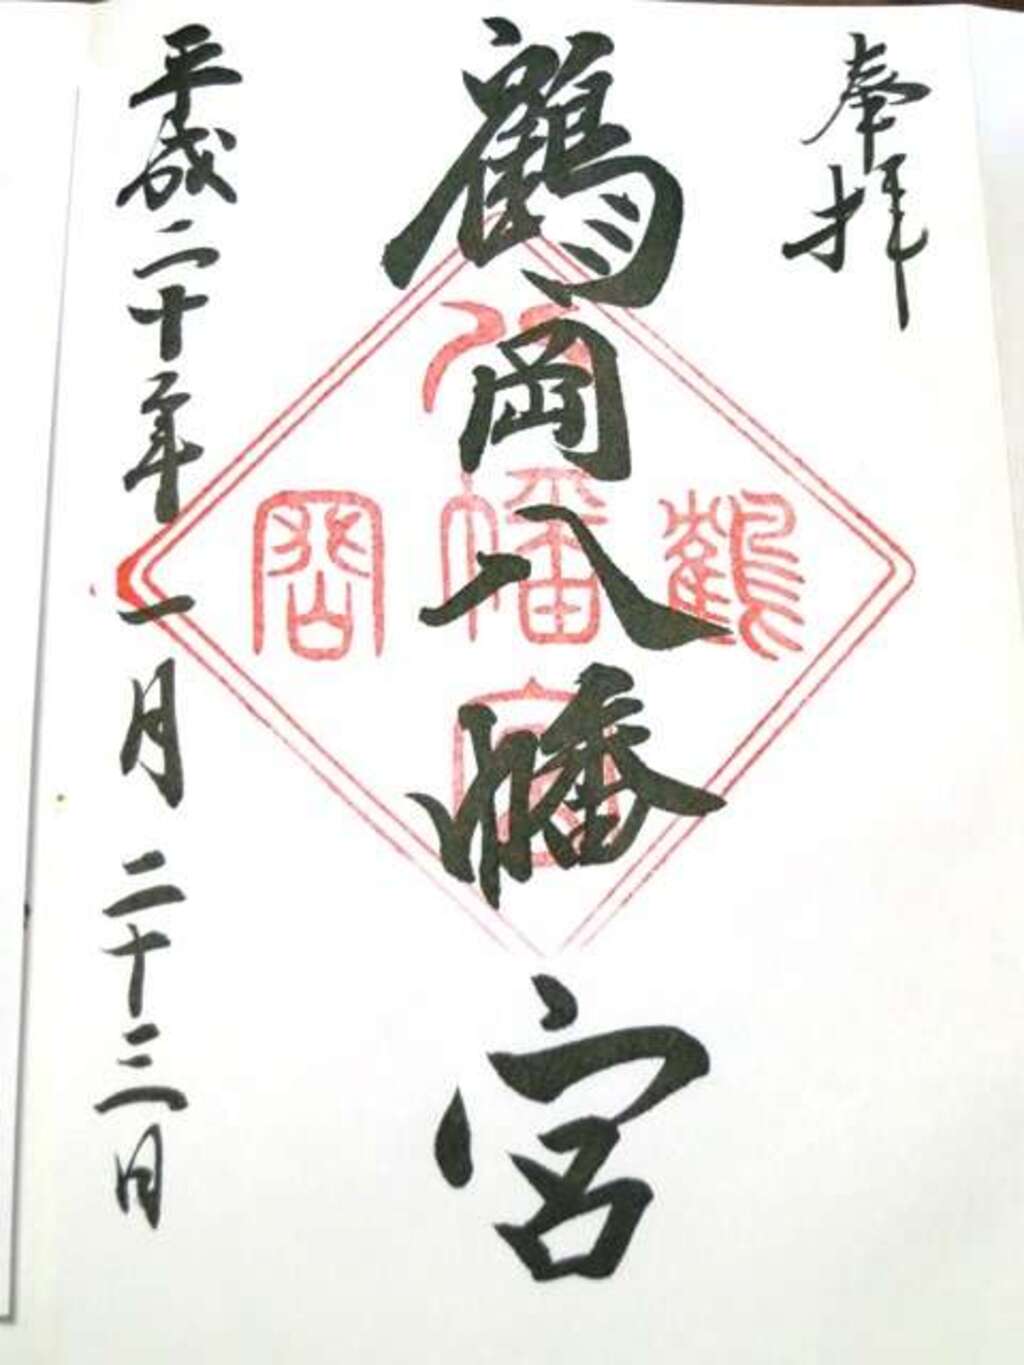 奉拝
鶴岡八幡宮
平成二十年一月二十三日
鶴
八
幡
宮
岡